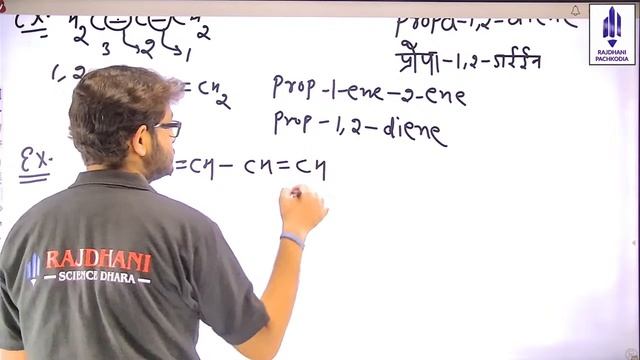 Ex. CH2 = C = CH2
Propa-1,2-diene
3 2 1
प्रोपा-1,2-डाईईन
1,2
= CH2
Prop-1-ene-2-ene
Prop-1,2-diene
Ex. =CH-CH=CH
RAJDHANI
PACHKODIA
RAJDHANI
SCIENCE DHARA